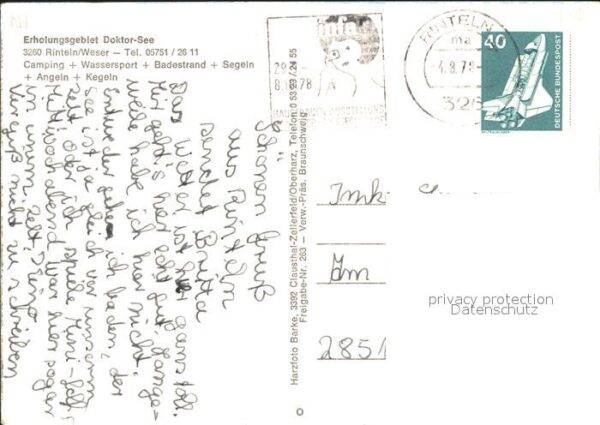 Erholungsgebiet Doktor-See
3260 Rinteln/Weser – Tel. 05751 / 26 11
Camping + Wassersport + Badestrand + Segeln
+ Angeln + Kegeln
Schönen Gruß
aus Rinteln
sendet Britta
Das Wetter ist hier ganz toll.
Mir geht's hier echt gut. Lange-
weile habe ich hier nicht.
Entweder gehe ich baden, der
See ist ja gleich vor unserem
Zelt oder ich spiele Mini-Golf,
Mittwochabend war hier sogar
im Zelt Disco.
Vergiß nicht zu schreiben
Harzfoto Barke, 3392 Clausthal-Zellerfeld/Oberharz, Telefon 0 53 23 /
Freigabe-Nr. 263 – Verw.-Präs. Braunschweig
29.
8. 78
RINTELN
ma
-4.8.78-
326
40
DEUTSCHE BUNDESPOST
Imk
Im
2851
privacy protection
Datenschutz